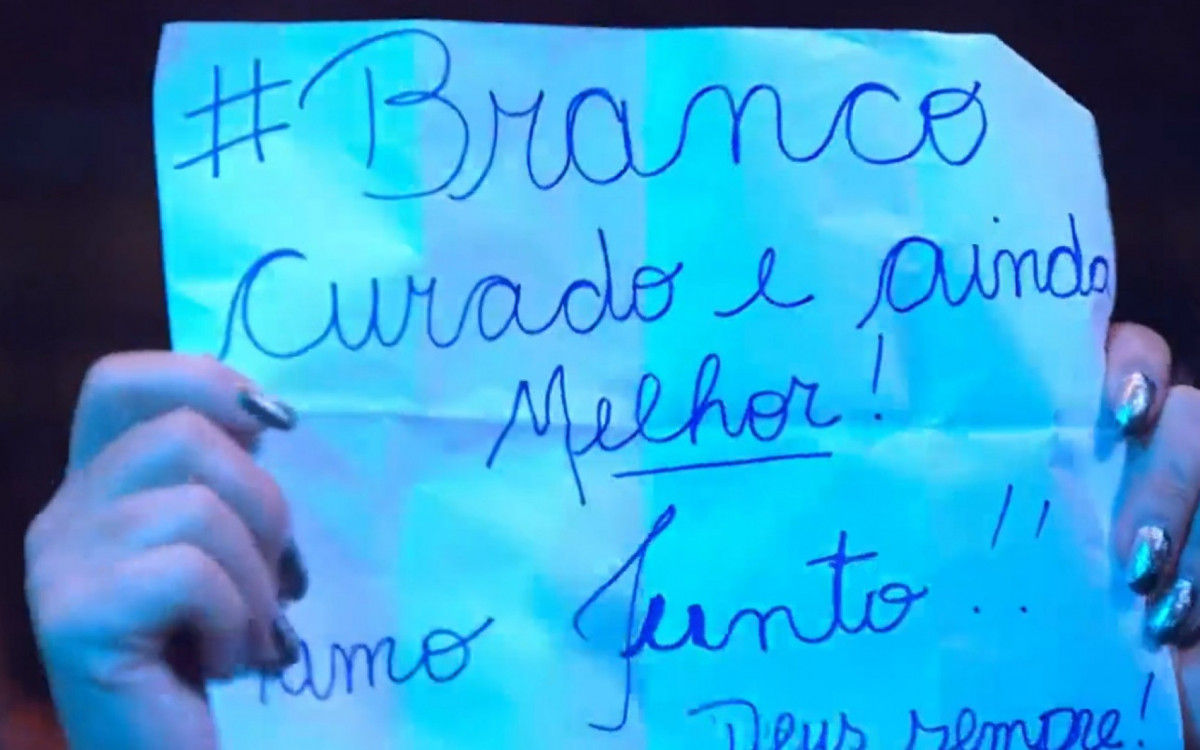 #Branco
Curado e ainda
Melhor!
Tamo Junto!!
Deus sempre!